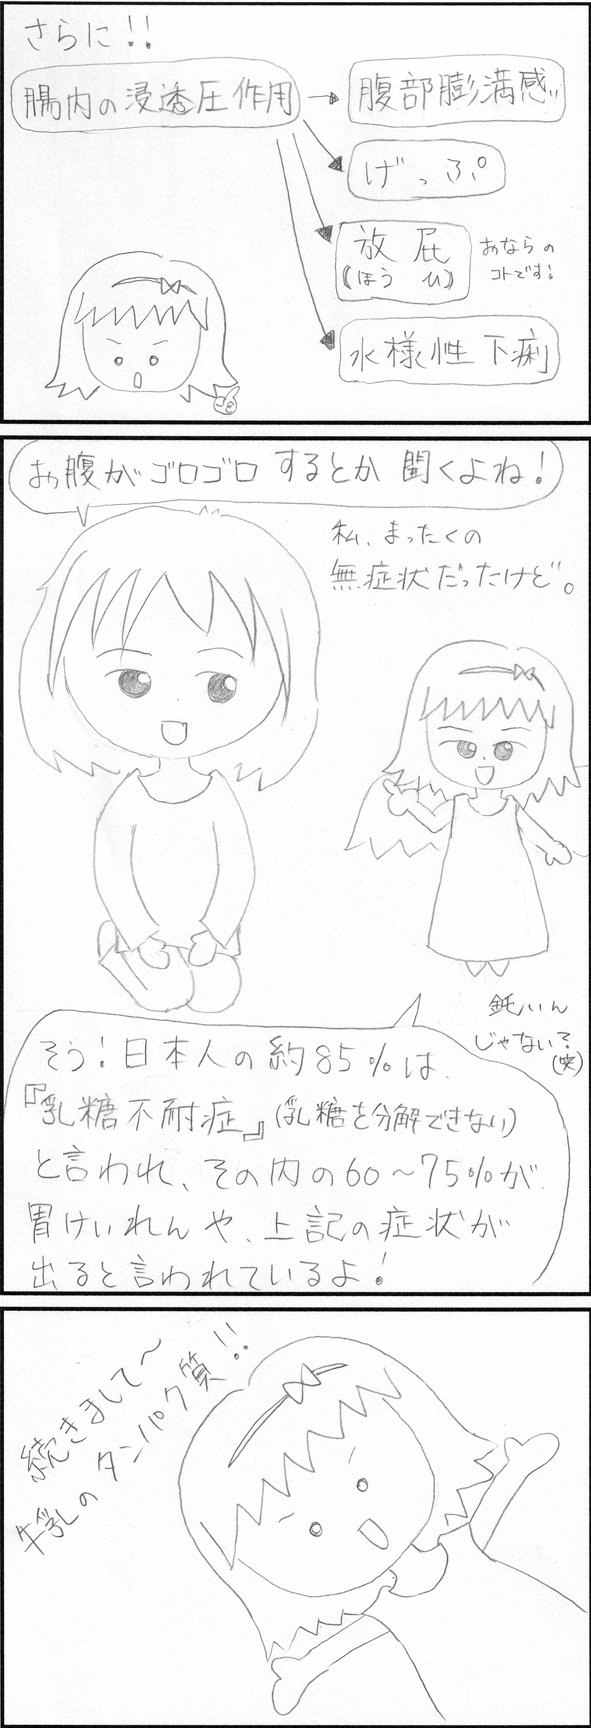 さらに!!
腸内の浸透圧作用
腹部膨満感
げっぷ
放屁
(ほうひ)
おならの
コトです!
水様性下痢
お腹がゴロゴロするとか聞くよね!
私、まったくの
無症状だったけど。
鈍いん
じゃない?
(笑)
そう!日本人の約85%は、
『乳糖不耐症』(乳糖を分解できない)
と言われ、その内の60~75%が
胃けいれんや、上記の症状が
出ると言われているよ!
続きまして~
牛乳のタンパク質!!